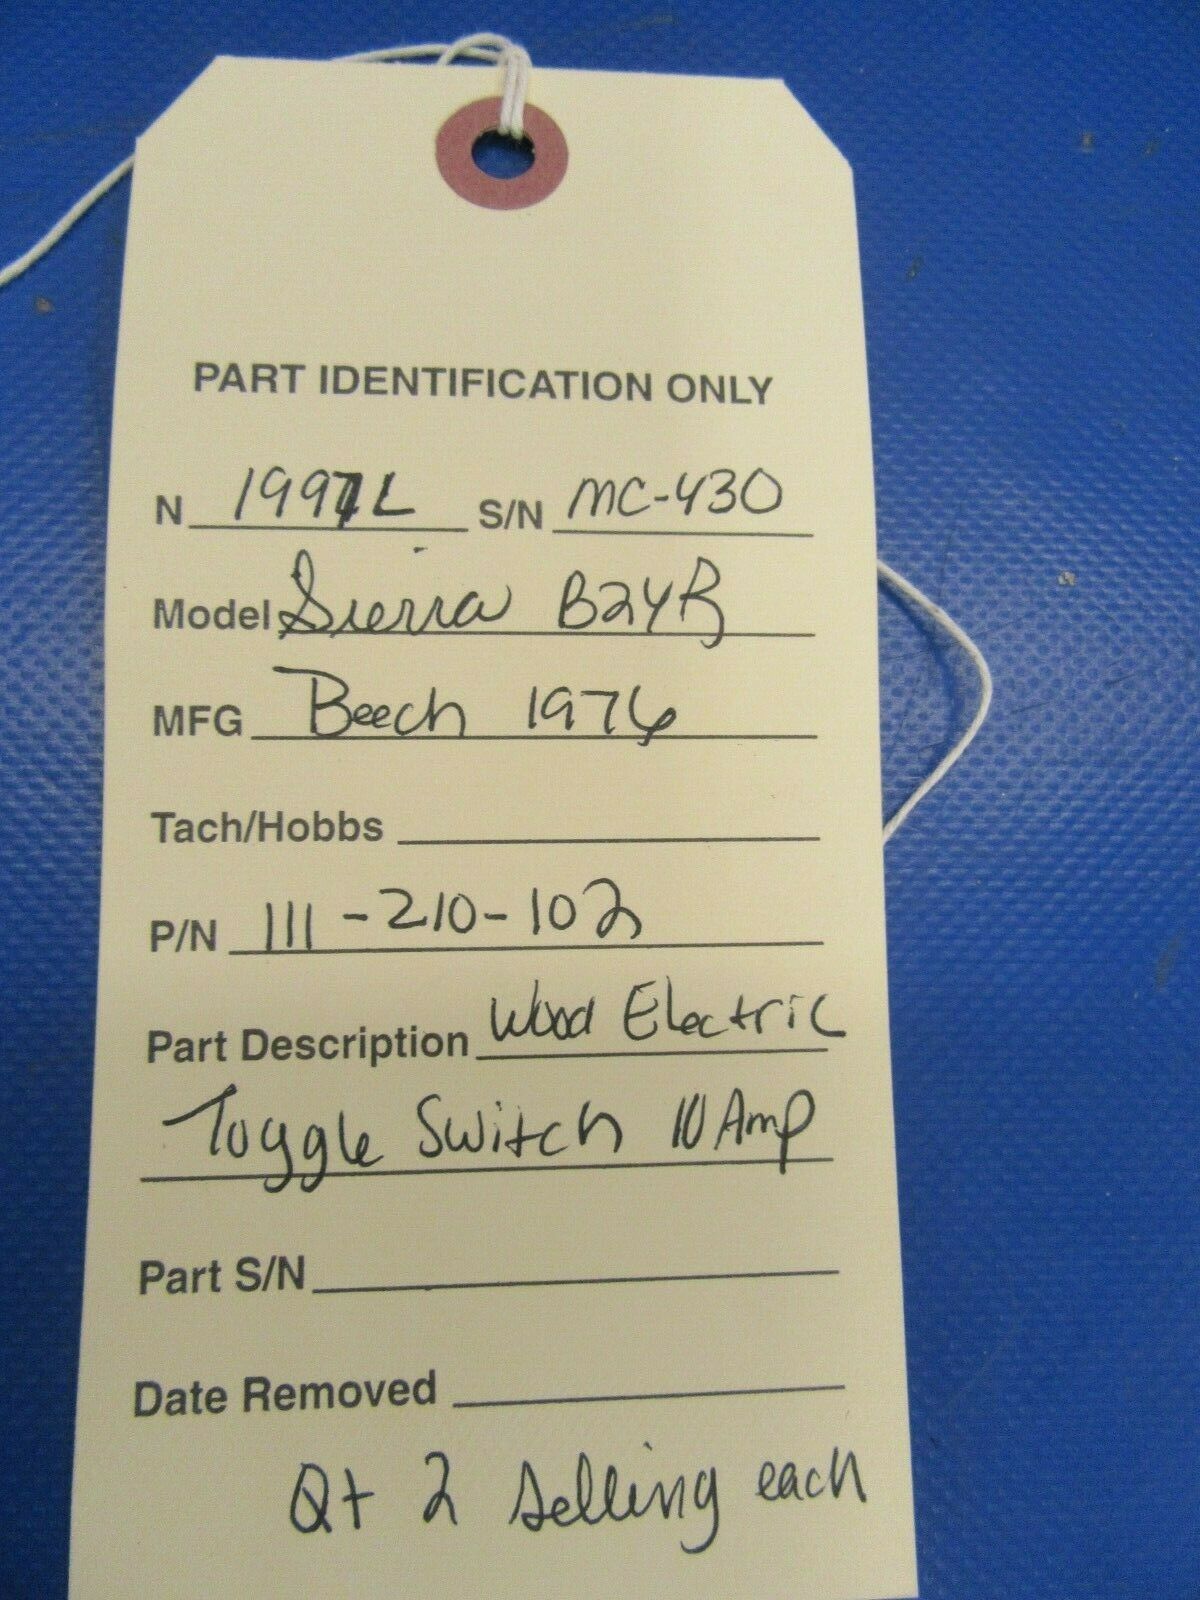 PART IDENTIFICATION ONLY
N 1997L S/N MC-430
Model Sierra B24R
MFG Beech 1976
Tach/Hobbs
P/N 111-210-102
Part Description Wood Electric
Toggle Switch 10 Amp
Part S/N
Date Removed
Qt 2 selling each